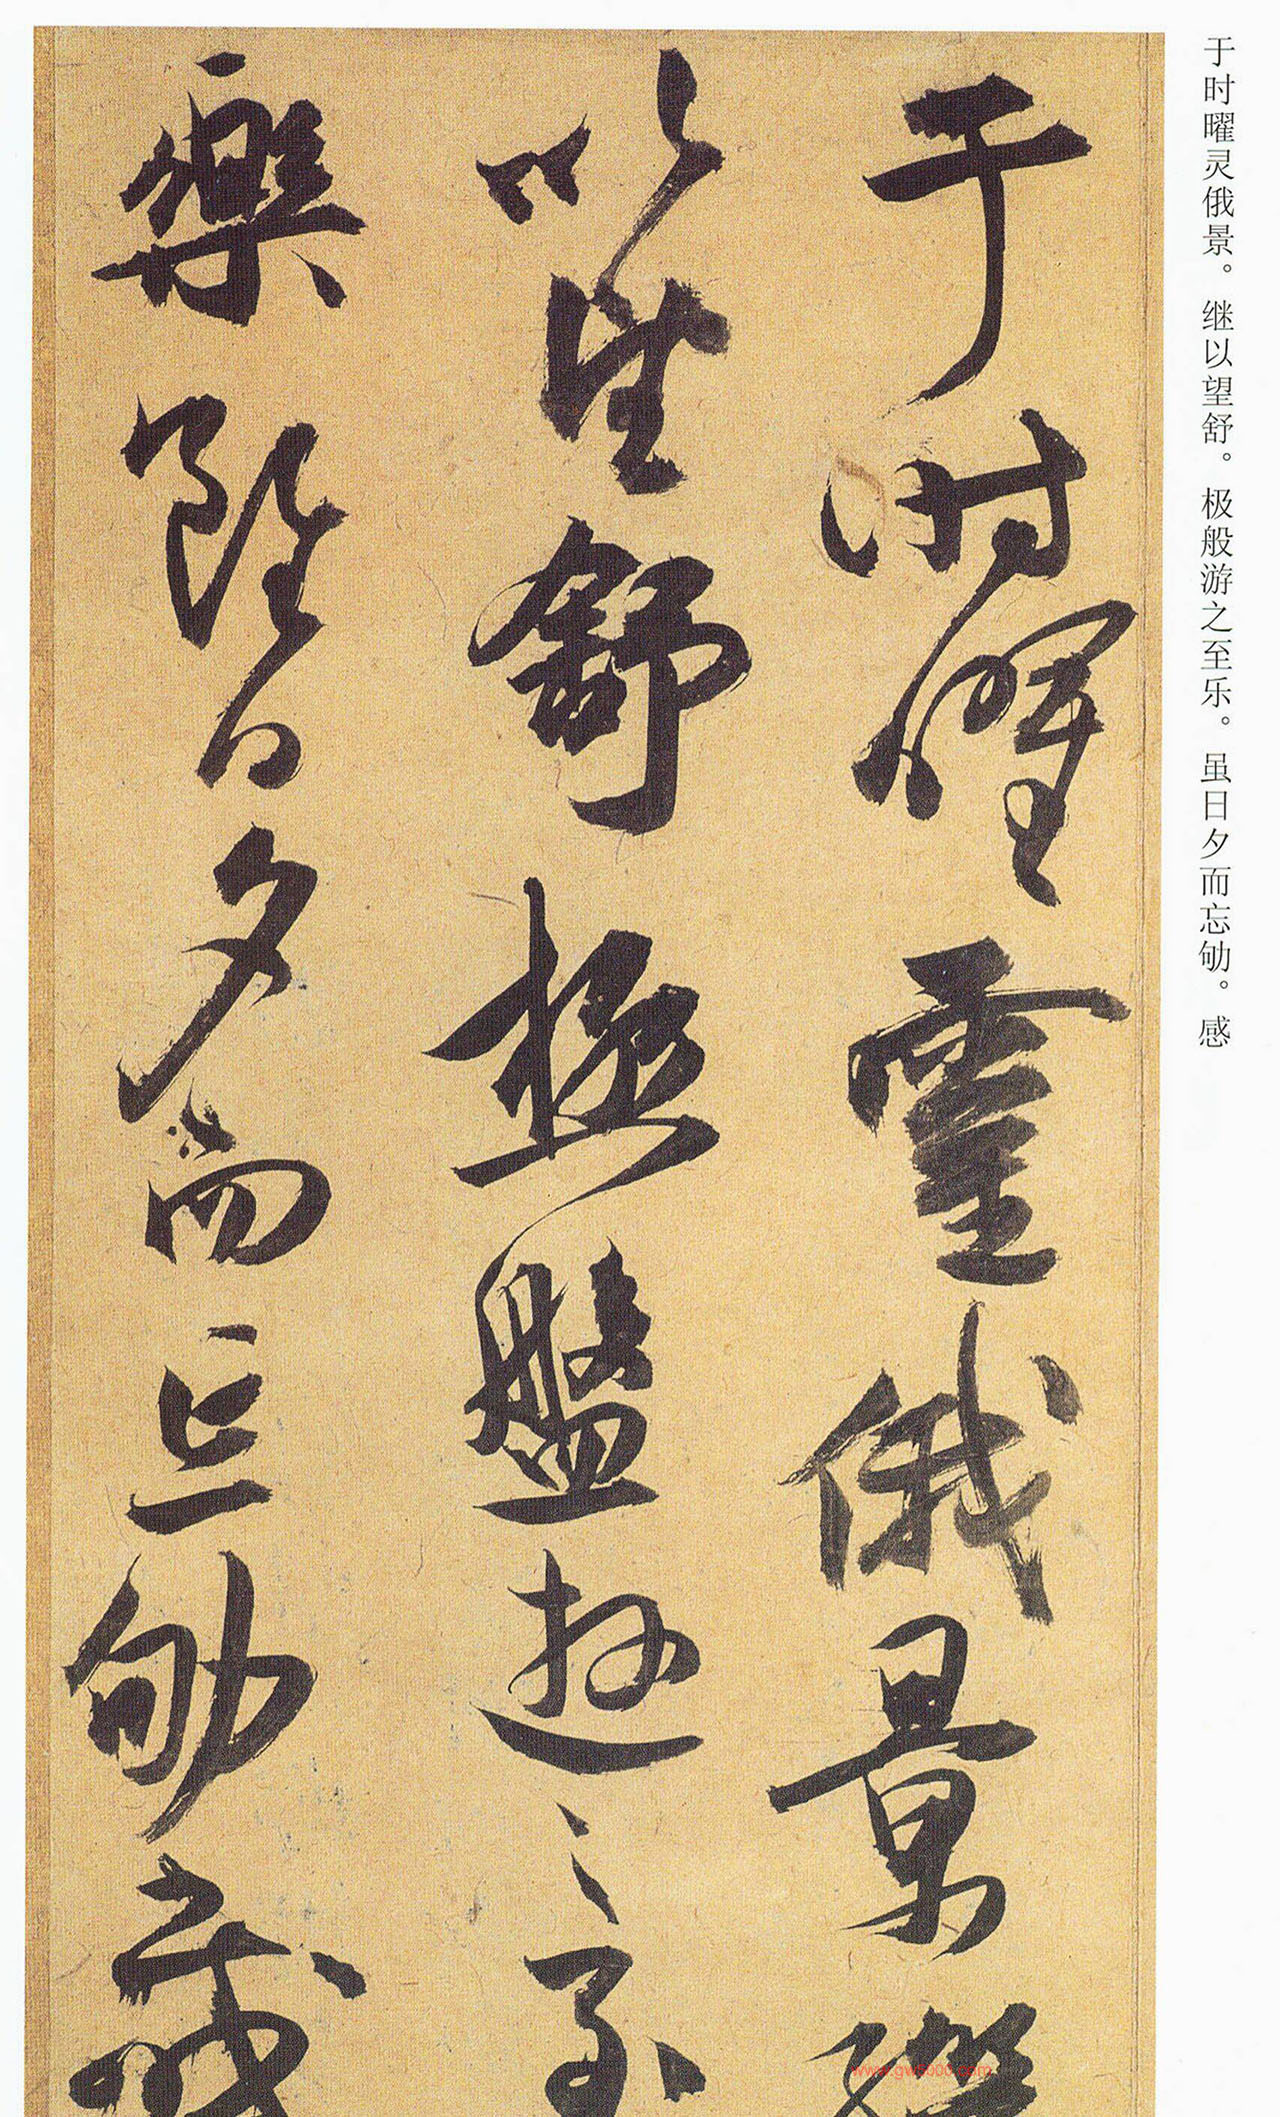 于时曜灵俄景。继以望舒。极般游之至乐。虽日夕而忘劬。感
于时曜靈俄景繼
以望舒極盤遊之至
樂雖日夕而忘劬感
www.gw5000.com